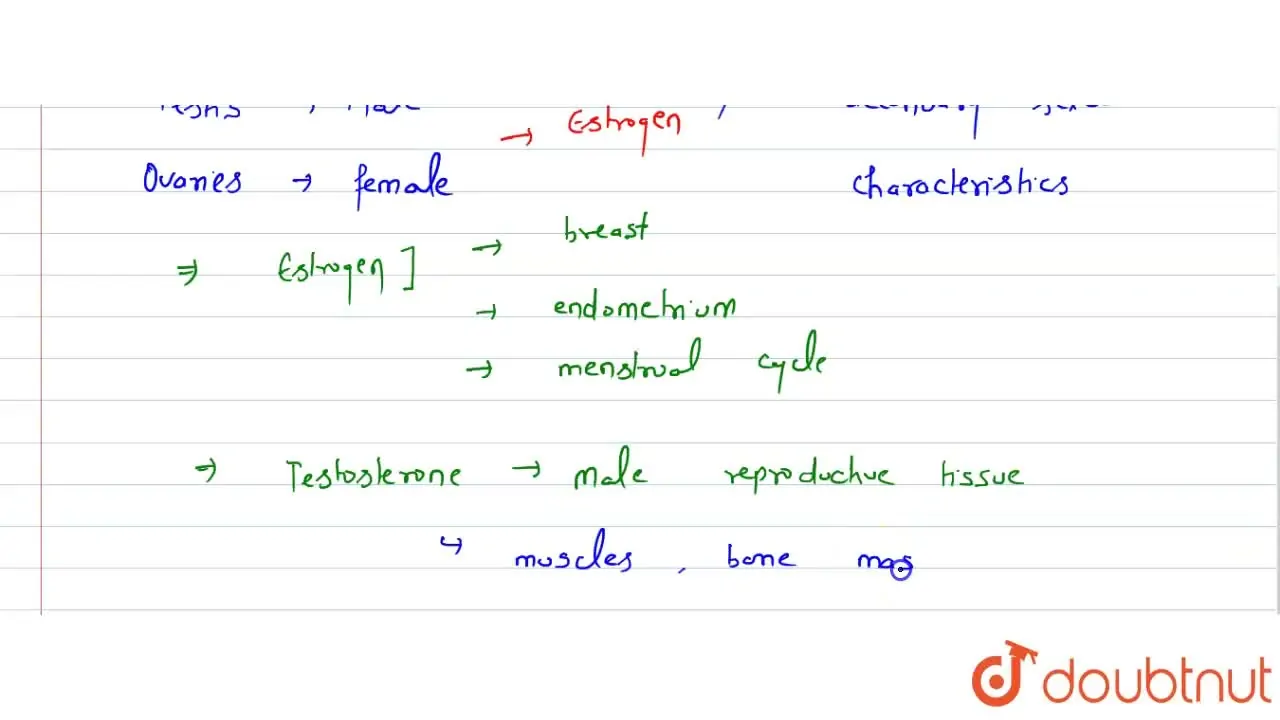 → Estrogen ,
Ovaries → female characteristics
→ breast
⇒ Estrogen ]
→ endometrium
→ menstrual cycle
⇒ Testosterone → male reproductive tissue
↳ muscles , bone mas
doubtnut